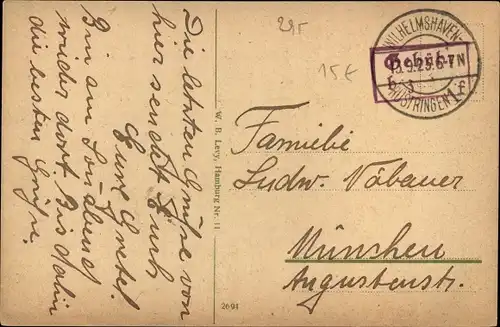 Die letzten Grüße von
hier sendet Euch
Eure Gretel
Bin am Sonabend
wieder dort Bis dahin
die besten Grüße.
W. B. Levy, Hamburg Nr. 11
2691
295
15€
WILHELMSHAVEN-
Gebühr
6-7N
RÜSTRINGEN 1 f
Familie
Ludw. Vöbauer
München
Augustenstr.